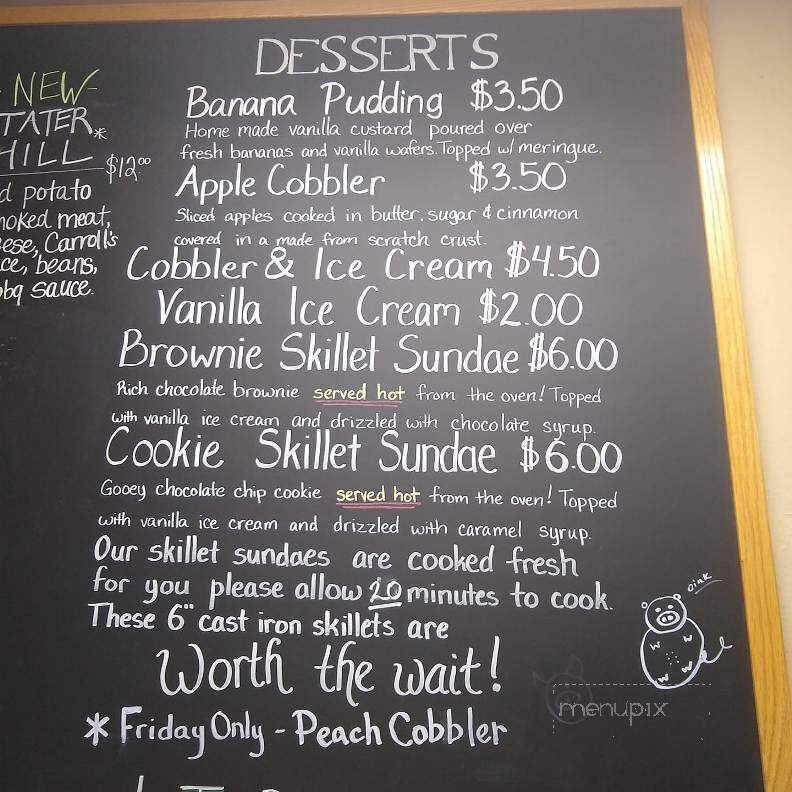 - NEW -
TATER *
HILL $12.00
potato
smoked meat,
cheese, Carroll's
beans,
bbq sauce.
DESSERTS
Banana Pudding $3.50
Home made vanilla custard poured over
fresh bananas and vanilla wafers. Topped w/ meringue.
Apple Cobbler $3.50
Sliced apples cooked in butter, sugar & cinnamon
covered in a made from scratch crust.
Cobbler & Ice Cream $4.50
Vanilla Ice Cream $2.00
Brownie Skillet Sundae $6.00
Rich chocolate brownie served hot from the oven! Topped
with vanilla ice cream and drizzled with chocolate syrup.
Cookie Skillet Sundae $6.00
Gooey chocolate chip cookie served hot from the oven! Topped
with vanilla ice cream and drizzled with caramel syrup.
Our skillet sundaes are cooked fresh
for you please allow 20 minutes to cook.
These 6" cast iron skillets are
Worth the wait!
* Friday Only - Peach Cobbler
oink
menupix